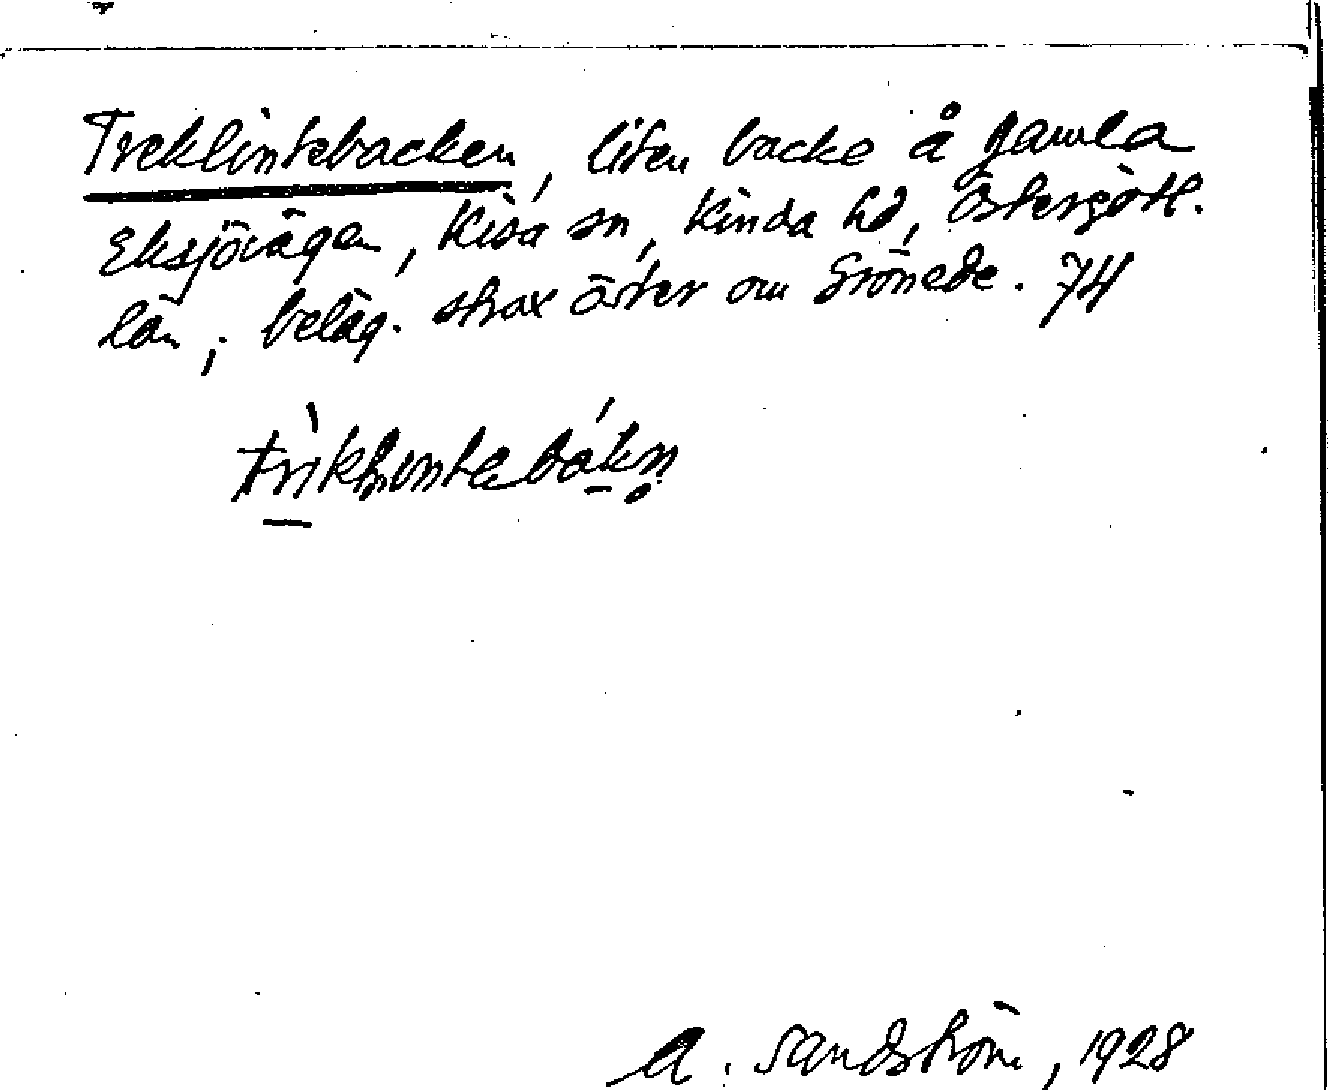 Treklintebacken, liten backe å gamla
Eksjövägen, Kisa sn, Kinda hd, Östergötl.
län, beläg. strax öster om Grönede. 74
A. Sandström, 1928